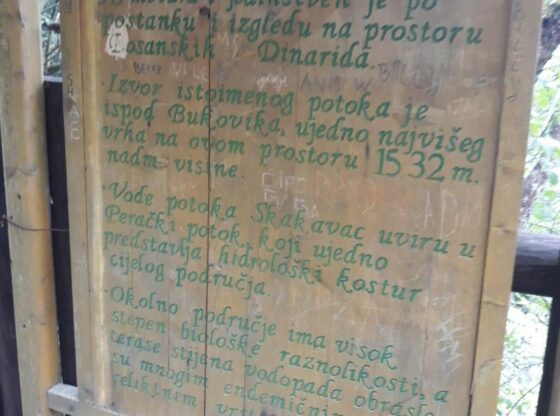 i jedinstven je po
postanku i izgledu na prostoru
Bosanskih Dinarida.
·Izvor istoimenog potoka je
ispod Bukovika, ujedno najvišeg
vrha na ovom prostoru 1532 m.
nadm visine.
·Vode potoka Skakavac uviru u
Perački potok, koji ujedno
predstavlja hidrološki kostur
cijelog područja.
·Okolno područje ima visok
stepen biološke raznolikosti, a
terase stijena vodopada obrasle
su mnogim endemičnim
reliktnim